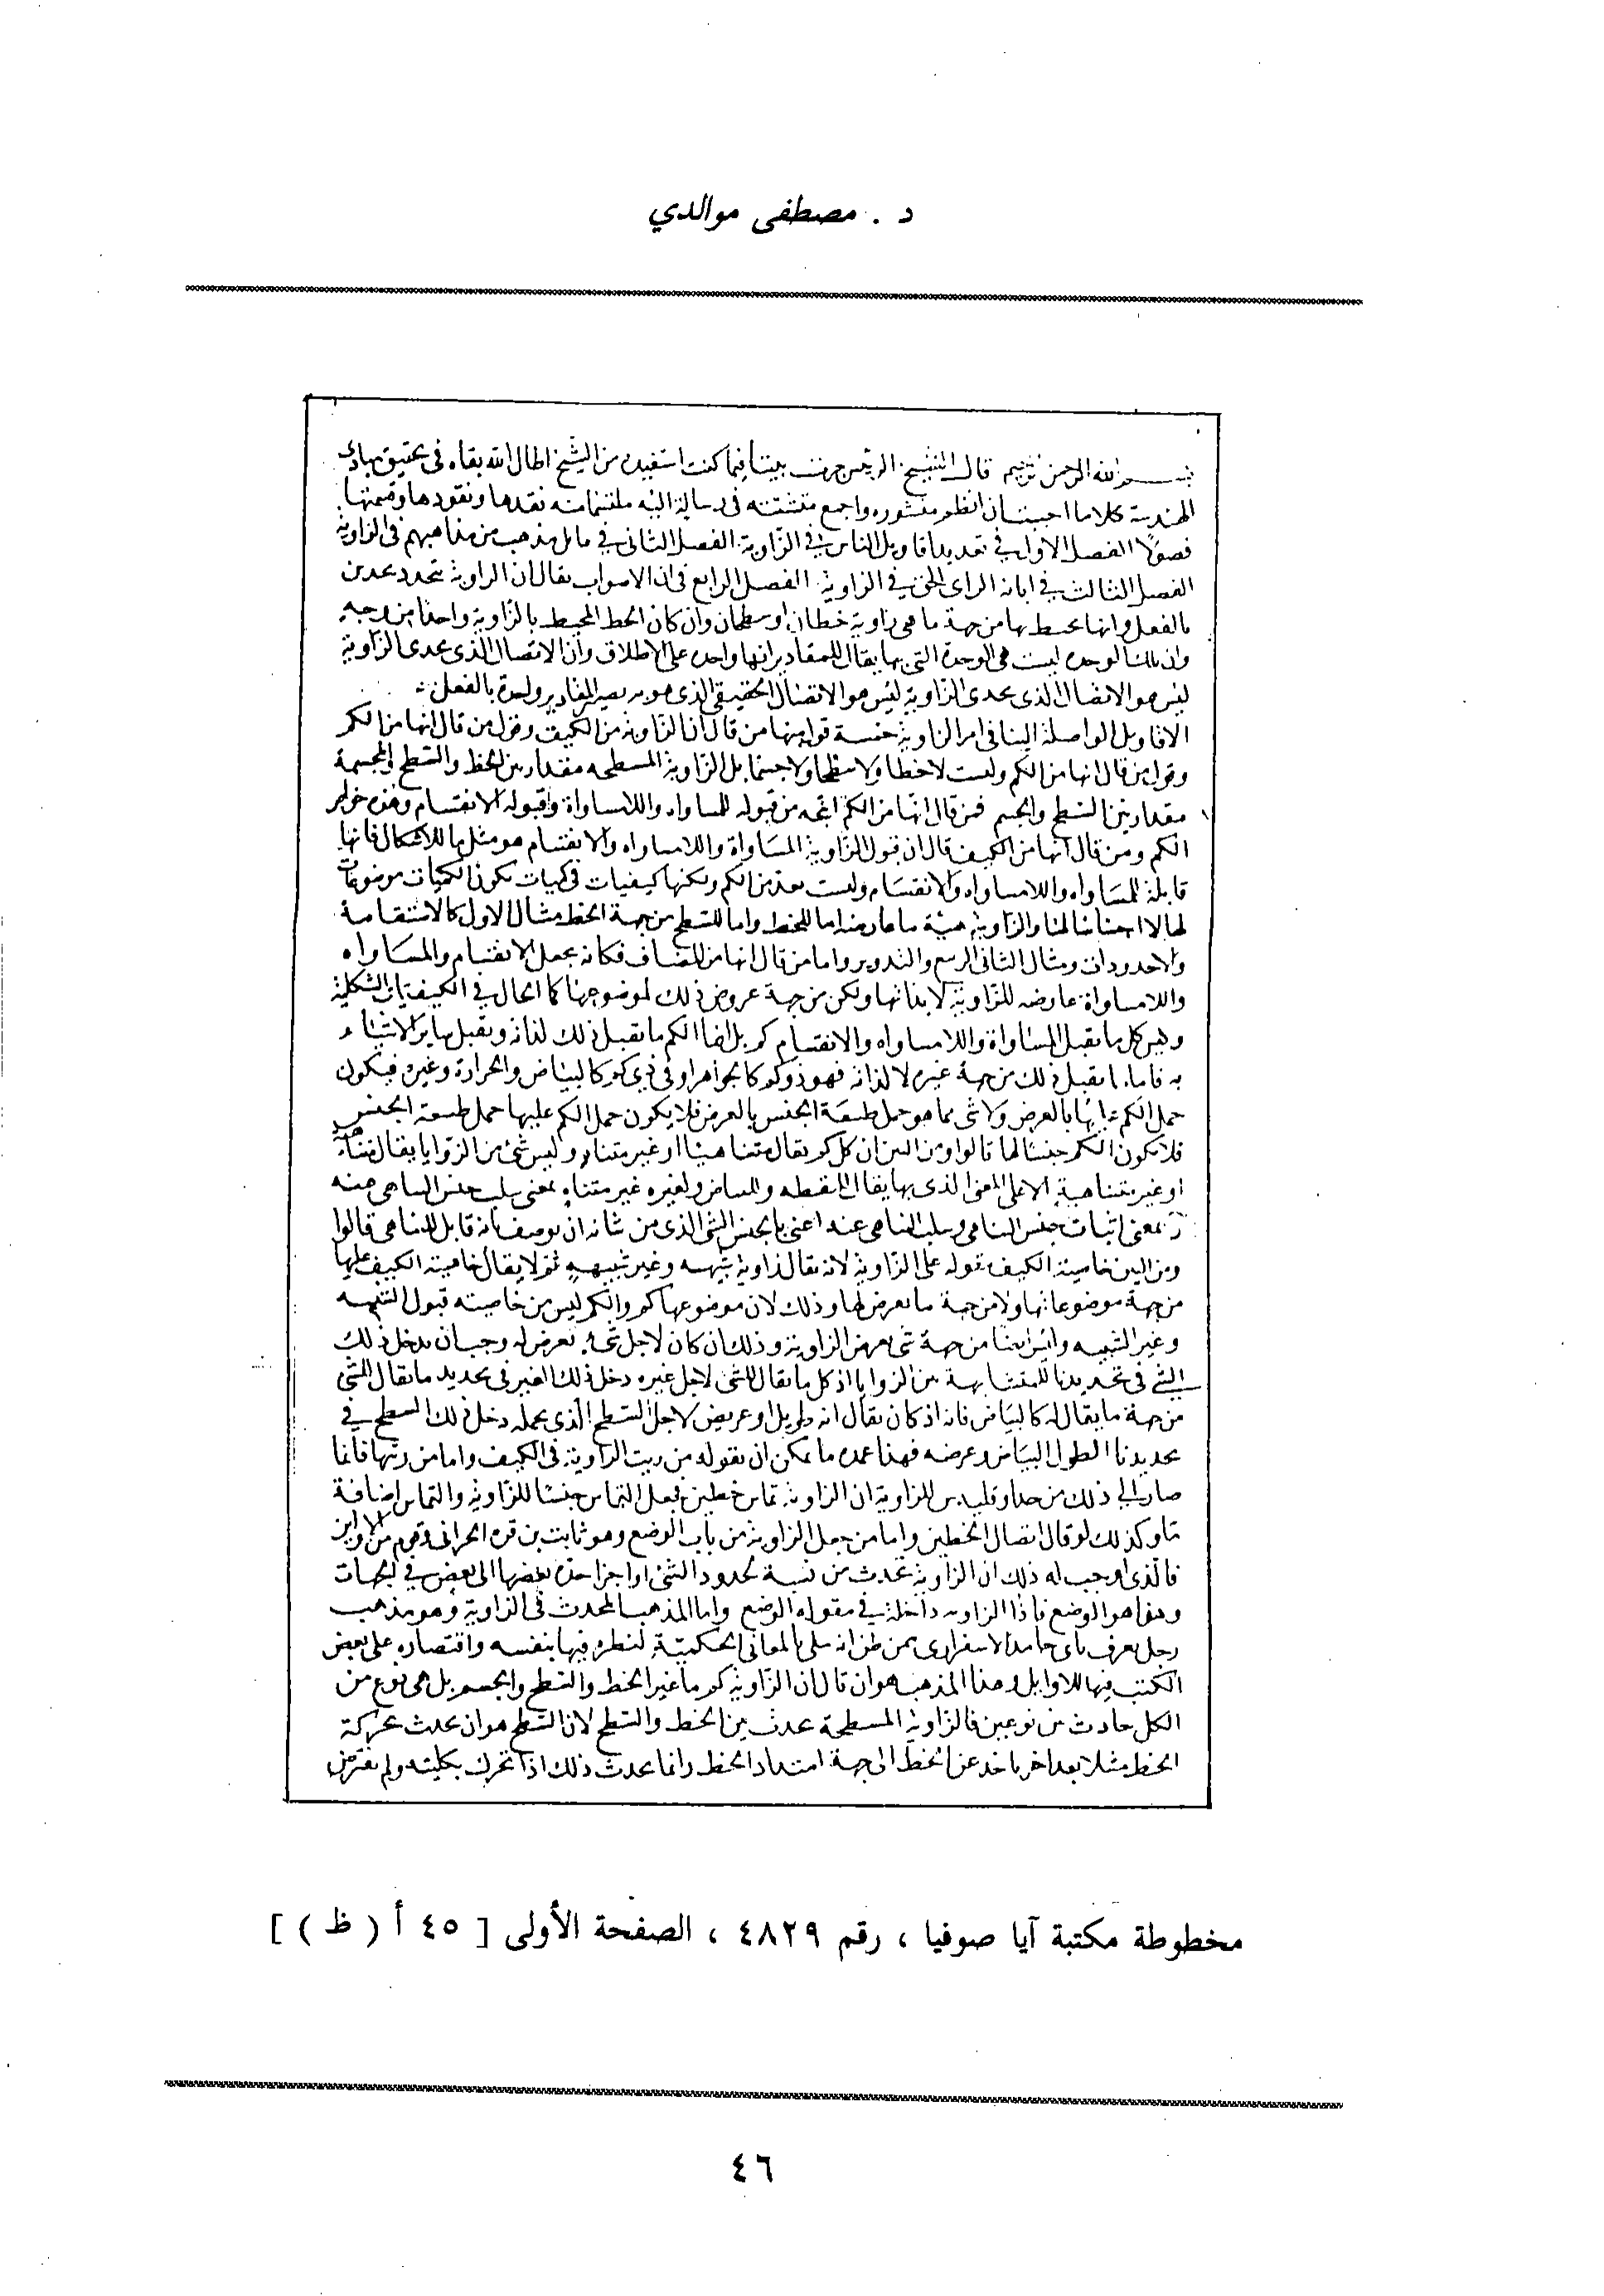 د . مصطفى موالدي
بسم الله الرحمن الرحيم قال الشيخ الرئيس جرت بيننا فيما كنت استفيده من الشيخ اطال الله بقاه في تحقيق مبادى
الهندسة كلاما احببت ان انظم منثوره واجمع متشتته في رسالة اليه ملتمسا منه نقدها ونقودها وقسمتها
فصولا الفصل الاول في تعديد اقاويل الناس في الزاوية الفصل الثاني في ما يذهب من مذاهبهم في الزاوية
الفصل الثالث في ابانة الراى الحق في الزاوية الفصل الرابع في ان الاصوب يقال ان الزاوية تتحدد بحدين
بالفعل وانها يحيط بها من جهة ما هي زاوية خطان او سطحان وان كان الخط المحيط بالزاوية واحدا من وجه
وان تلك الوحدة ليست هي الوحدة التي بها يقال للمقادير انها واحدة على الاطلاق وان الاتصال الذى بحدى الزاوية
ليس هو الاتصال الذى بحدى الزاوية ليس هو الاتصال الحقيقي الذى هو به يصير المقادير واحدة بالفعل
الاقاويل الواصلة الينا في امر الزاوية خمسة قول من قال ان الزاوية من الكيف وقول من قال انها من الكم
وقول من قال انها من الكم وليست لا خطا ولا سطحا ولا جسما بل الزاوية المسطحه مقدار بين الخط والسطح والمجسمة
مقدار بين السطح والجسم فمن قال انها من الكم اتجه من قبوله للمساواه واللامساواة وقبوله الانقسام وهذه خواص
الكم ومن قال انها من الكيف قال ان قبول الزاوية المساواة واللامساواه والانقسام هو مثل ما للاشكال فانها
قابلة للمساواه واللامساواه والانقسام وليست بعد من الكم ولكنها كيفيات في كميات تكون الكميات موضوعات
لها لا اجناسا لها والزاوية هيئة ما عارضة اما للخط واما للسطح من جهة الخط مثال الاول كالاستقامة
والاحدودات ومثال الثاني الربيع والتدوير واما من قال انها من المضاف فكانه يجعل الانقسام والمساواه
واللامساواة عارضه للزاوية لا بذاتها ولكن من جهة عروض ذلك لموضوعها كما الحال في الكيفيات الشكلية
وليس كل ما يقبل المساواة واللامساواه والانقسام كم بل انما الكم ما يقبل ذلك لذاته ويقبل سايرا الاشياء
به فاما ما يقبل ذلك من جهة غيره لا لذاته فهو ذو كم كالجواهر او في ذي كم كالبياض والحرارة وغيره فيكون
حمل الكم عليها بالعرض ولا شى مما هو حمل طبيعة الجنس بالعرض فلا يكون حمل الكم عليها حمل طبيعة الجنس
فلا يكون الكم جنسا لها قالوا ومن البين ان كل كم يقال متناهيا او غير متناه وليس شئ من الزوايا يقال متناهية
او غير متناهية الا على المعنى الذى بها يقال للنقطه والبياض ولغيره غير متناه بمعنى سلب جنس التناهي عنه
بمعنى اثبات جنس التناهي وسلب التناهي عنه اعنى بالجنس الشى الذى من شانه ان يوصف بانه قابل للتناهي قالوا
ومن البين خاصية الكيف مقوله على الزاوية لانه يقال زاوية شبيهه وغير شبيهه ثم لا يقال خاصية الكيف عليها
من جهة موضوعاتها ولا من جهة ما يعرض لها وذلك لان موضوعها كم والكم ليس من خاصيته قبول الشبيه
وغير الشبيه وليس ايضا من جهة شى يعرض الزاوية وذلك ان كان لاجل شى يعرض لها وجب ان يدخل ذلك
الشى في تحديدنا للمتشابهة من الزوايا اذ كل ما يقال للشى لاجل غيره دخل ذلك الغير في تحديد ما يقال للشى
من جهة ما يقال له كالبياض فانه اذ كان يقال انه طويل او عريض لاجل السطح الذى يحمله دخل ذلك السطح في
تحديدنا الطول البياض وعرضه فهذا عمدة ما يمكن ان يقوله من رتب الزاوية في الكيف واما من رتبها فانما
صار الى ذلك من حد اوقليدس للزاوية ان الزاوية تماس خطين فجعل التماس جنسا للزاوية والتماس اضافة
ما وكذلك لو قال اتصال الخطين واما من جعل الزاوية من باب الوضع وهو ثابت بن قره الحراني وقوم من الاولين
فالذى اوجب له ذلك ان الزاوية تحدث من نسبة لحدود الشئ او اجزا حده بعضها الى بعض في الجهات
وهذا هو الوضع فاذا الزاويه داخلة في مقوله الوضع واما المذهب المحدث في الزاوية وهو مذهب
رجل يعرف بابى حامد الاسفزارى ممن ظن انه ملى بالمعاني الحكمية لنظره فيها بنفسه واقتصاره على بعض
الكتب فيها للاوايل وهذا المذهب هو ان قال ان الزاوية كم ما غير الخط والسطح والجسم بل هي نوع من
الكل حادث من نوعين فالزاوية المسطحة تحدث بين الخط والسطح لان السطح هو ان يحدث بحركة
الخط مثلا بعد اخر ياخذ عن الخط الى جهة امتداد الخط وانما يحدث ذلك اذا تحرك بكليته ولم نفترض
مخطوطة مكتبة آيا صوفيا ، رقم ٤٨٢٩ ، الصفحة الأولى [ ٤٥ أ ( ظ ) ]
٤٦